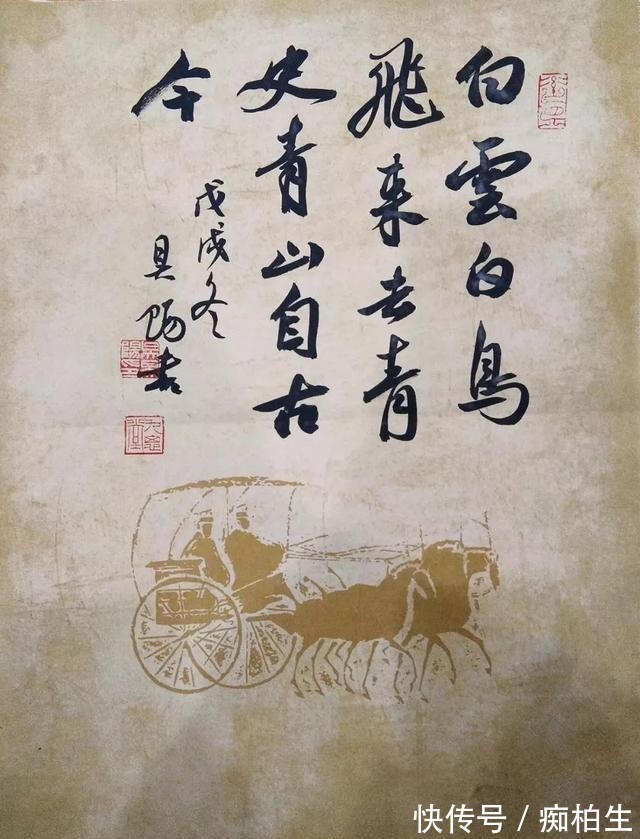 白雲白鳥
飛来去青
史青山自古
今
戊戌冬
具
快传号 / 痴柏生